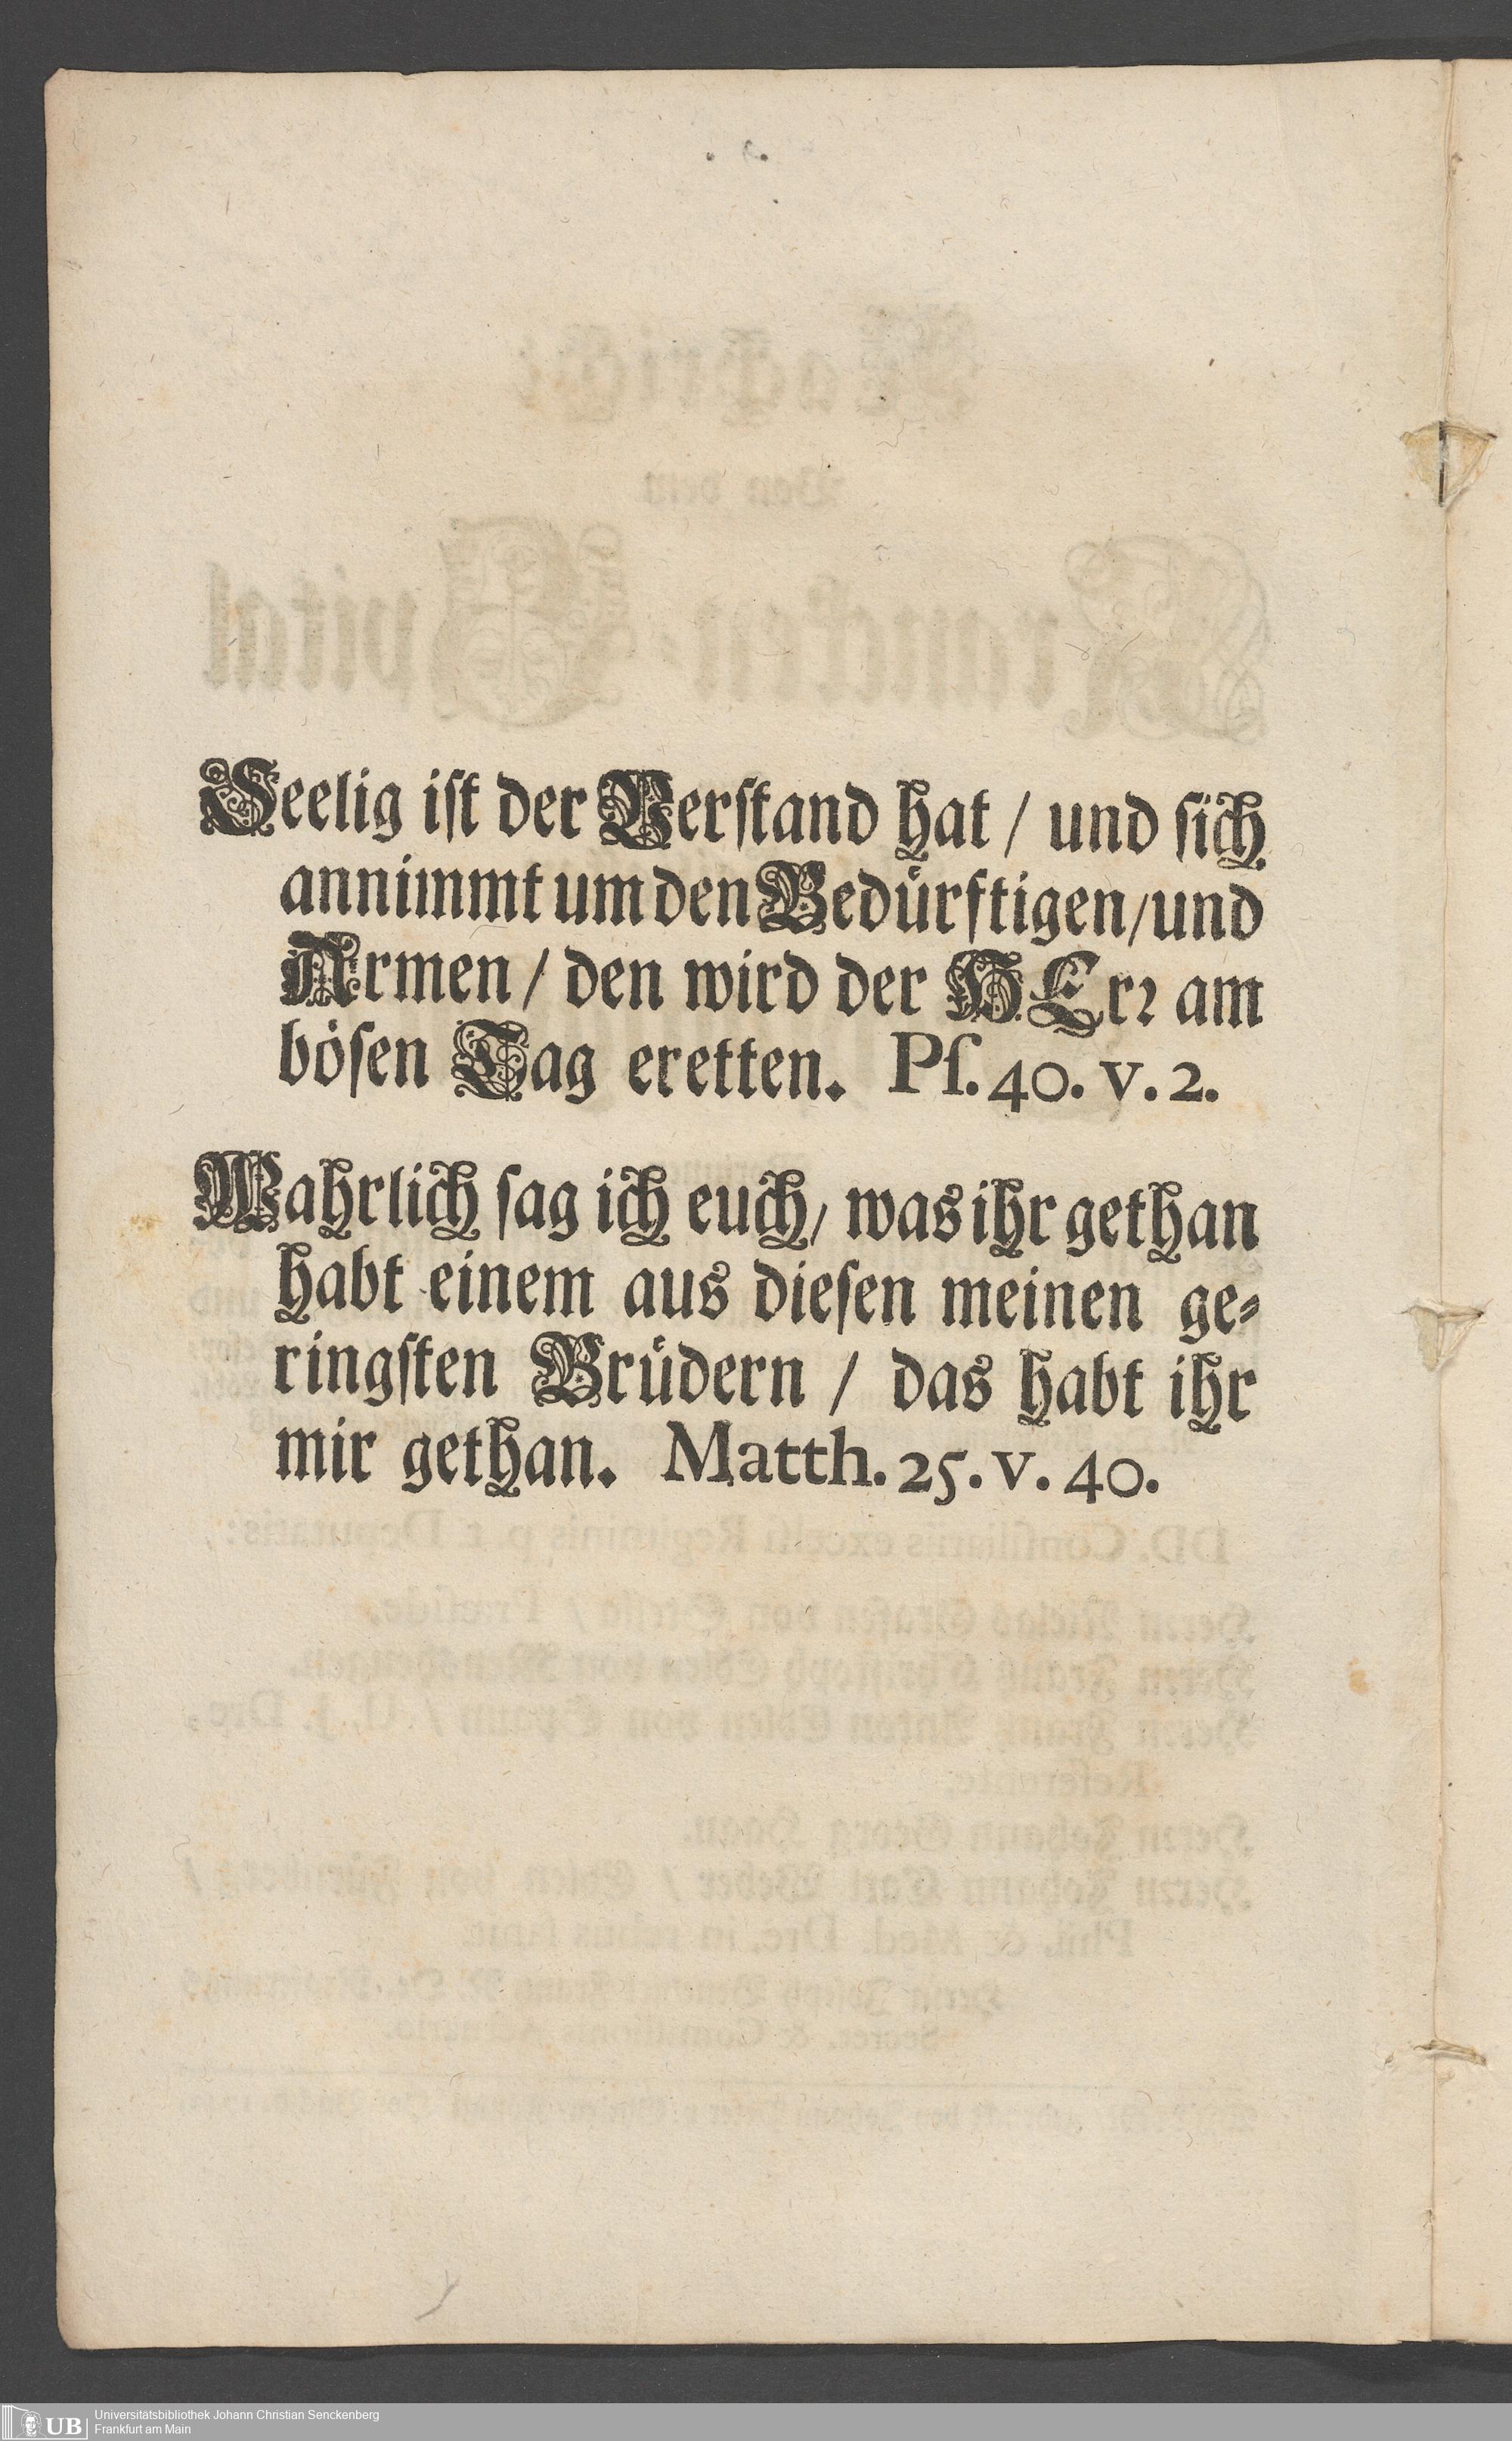 Seelig ist der Verstand hat / und sich
annimmt um den Bedürftigen / und
Armen / den wird der HErꝛ am
bösen Tag eretten. Pſ. 40. v. 2.
Wahrlich sag ich euch / was ihr gethan
habt einem aus diesen meinen ge-
ringsten Brüdern / das habt ihr
mir gethan. Matth. 25. v. 40.
Universitätsbibliothek Johann Christian Senckenberg
Frankfurt am Main
UB